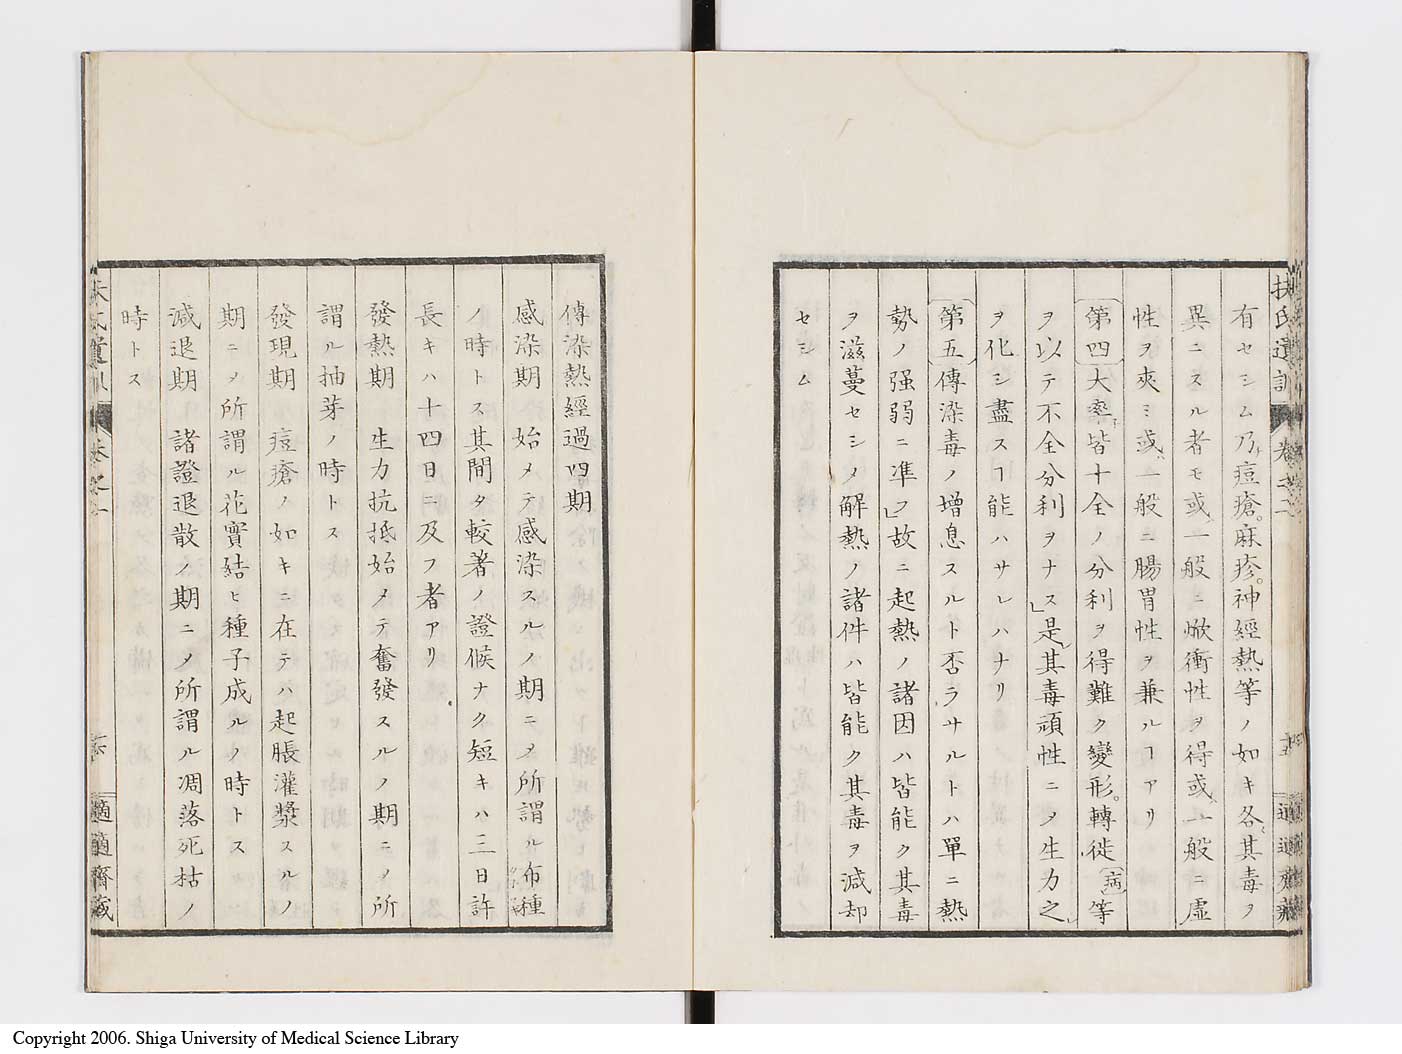 有セシム乃痘瘡。麻疹。神經熱等ノ如キ各其毒ヲ
異ニスル者モ或一般ニ焮衝性ヲ得或一般ニ虚
性ヲ夾ミ或一般ニ腸胃性ヲ兼ルヿアリ
第四 大率皆十全ノ分利ヲ得難ク變形。轉徙(病)等
ヲ以テ不全分利ヲナス」是其毒頑性ニヲ生力之
ヲ化シ盡スヿ能ハサレハナリ
第五 傳染毒ノ增息スルト否ラサルトハ單ニ熱
勢ノ强弱ニ準フ」故ニ起熱ノ諸因ハ皆能ク其毒
ヲ滋蔓セシメ解熱ノ諸件ハ皆能ク其毒ヲ減却
セシム
傳染熱經過四期
感染期 始メテ感染スルノ期ニメ所謂ル布種
ノ時トス其間タ較著ノ證候ナク短キハ三日許
長キハ十四日ニ及フ者アリ
發熱期 生力抗抵始メテ奮發スルノ期ニノ所
謂ル抽芽ノ時トス
發現期 痘瘡ノ如キニ在テハ起脹灌漿スルノ
期ニメ所謂ル花實結ヒ種子成ルノ時トス
減退期 諸證退散ノ期ニメ所謂ル凋落死枯ノ
時トス
扶氏遺訓 卷之二 十五 適適齋藏
適適齋藏
Copyright 2006. Shiga University of Medical Science Library